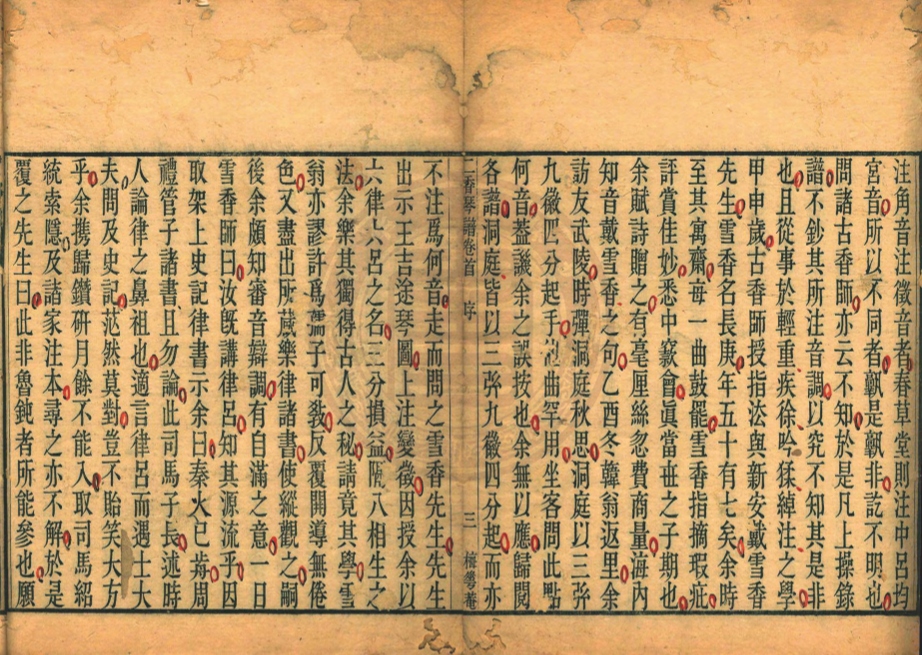 注角音注徵音者春草堂則注中呂均
宮音所以不同者孰是孰非訖不明也
問諸古香師亦云不知於是凡上操錄
譜不鈔其所注音調以究不知其是非
也且從事於輕重疾徐吟猱綽注之學
甲申歲古香師授指法與新安戴雪香
先生雪香名長庚年五十有七矣余時
至其寓齋每一曲鼓罷雪香指摘瑕疵
評賞佳妙悉中竅會眞當世之子期也
余賦詩贈之有毫厘絲忽費商量海內
知音戴雪香之句乙酉冬韓翁返里余
訪友武陵時彈洞庭秋思洞庭以三弦
九徽四分起手 曲罕用坐客問此點
何音蓋譏余之誤按也余無以應歸閱
各譜洞庭皆以三弦九徽四分起而亦
二香琴譜卷首 序 三
不注爲何音走而問之雪香先生先生
出示王吉途琴圖上注變徵因授余以
六律六呂之名三分損益隔八相生之
法余樂其獨得古人之秘請竟其學雪
翁亦謬許爲孺子可教反覆開導無倦
色又盡出所蔵樂律諸書使縱觀之嗣
後余頗知審音辯調有自滿之意一日
雪香師曰汝旣講律呂知其源流乎因
取架上史記律書示余曰秦火已前周
禮管子諸書且勿論此司馬子長述時
人論律之鼻祖也適言律呂而遇士大
夫問及史記茫然莫對豈不貽笑大方
乎余携歸鑽研月餘不能入取司馬紹
統索隱及諸家注本尋之亦不解於是
覆之先生曰此非魯鈍者所能參也願